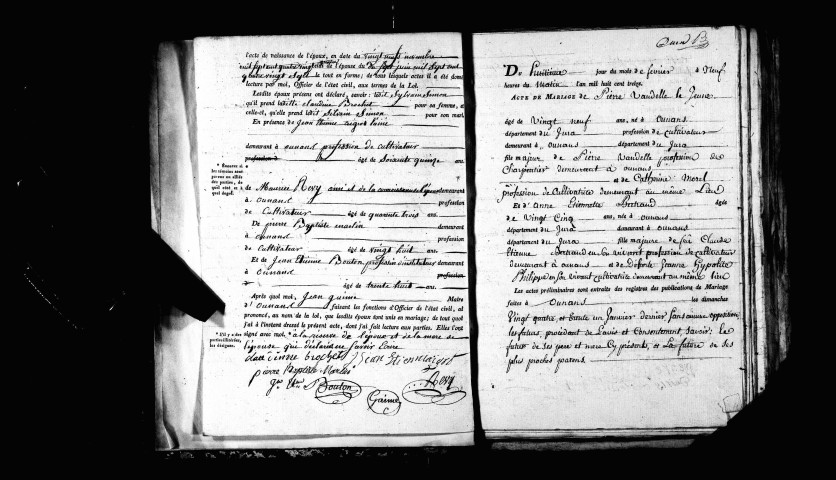 l'acte de naissance de l'époux, en date du vingt neuf novembre
mil sept cent quatre vingt de l'épouse du dix sept juin mil sept cent
quatre vingt sept le tout en forme; de tous lesquels actes il a été donné
lecture par moi, Officier de l'état civil, aux termes de la Loi.
Lesdits époux présens ont déclaré, savoir: ledit Sylvain Simon
qu'il prend ladite Claudine Brochet pour sa femme, &
celle-ci, qu'elle prend ledit Silvain Simon pour son mari.
En présence de Jean Etienne
demeurant à ounand profession de cultivateur
profession d âgé de soixante quinze ans.
de Maurice Rovy ami et de la connaissance de l'époux demeurant
à ounand profession
de Cultivateur âgé de quarante trois ans.
De pierre Baptiste demeurant
à ounand profession
de Cultivateur âgé de vingt huit ans.
Et de Jean Etienne Bouton profession d'instituteur demeurant
à ounand profession
âgé de trente huit ans.
Après quoi moi, Jean Maire
d'ounand faisant les fonctions d'Officier de l'état civil, ai
prononcé, au nom de la loi, que lesdits époux sont unis en mariage; de tout quoi
j'ai à l'instant dressé le présent acte, dont j'ai fait lecture aux parties. Elles l'ont
signé avec moi. * à la réserve de l'époux et de la mère de
l'épouse qui déclarent ne savoir écrire
brochet Jean Etienne
pierre Baptiste
Bouton
Rovy
Du huitième jour du mois de fevrier à Neuf
heures du Matin l'an mil huit cent treize.
ACTE DE MARIAGE de Pierre Vaudelle le Jeune
âgé de vingt neuf ans, né à ounans
département du Jura profession de cultivateur
demeurant à ounans département du Jura
fils majeur de Pierre Vaudelle profession de
Charpentier demeurant à ounans
et de Catherine Morel
profession de Cultivatrice demeurant au même Lieu
Et d'Anne Etiennette Bertrand âgée
de vingt Cinq ans, née à ounans
département du Jura demeurant à ounans
département du Jura fille majeure de feu Claude
Etienne Bertrand en son vivant profession de cultivateur
demeurant à ounans et de défunte Jeanne Hypolite
Philippe en son vivant cultivatrice demeurant au même lieu
Les actes préliminaires sont extraits des registres des publications de Mariage
faites à Ounans les dimanches
Vingt quatre et trente un Janvier dernier sans aucune opposition
les futurs, procédant de l'avis et consentement, savoir; le
futur de ses père et mère Cy présents, et La future de ses
plus proches parens.